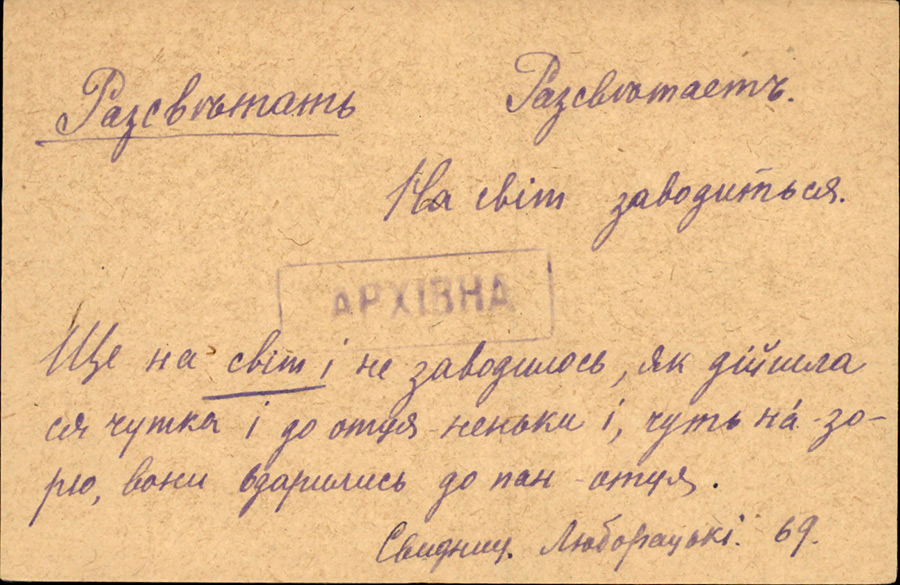 Разсвѣтать
Разсвѣтаетъ.
На світ заводиться.
АРХІВНА
Ще на світ і не заводилось, як дійшла
ся чутка і до отця-неньки і, чуть на́-зо-
рю, вони вдарились до пан-отця.
Свидниц. Люборацькі. 69.